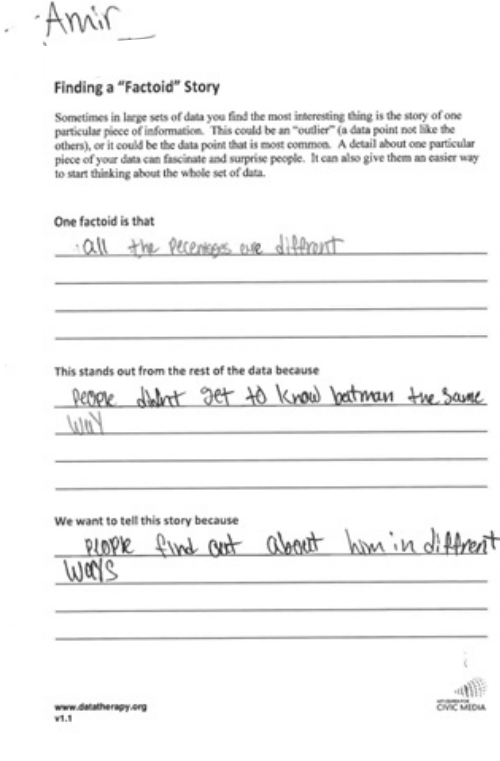 Amir
Finding a "Factoid" Story
Sometimes in large sets of data you find the most interesting thing is the story of one
particular piece of information. This could be an "outlier" (a data point not like the
others), or it could be the data point that is most common. A detail about one particular
piece of your data can fascinate and surprise people. It can also give them an easier way
to start thinking about the whole set of data.
One factoid is that
all the Pecentages are different
This stands out from the rest of the data because
People didn't get to know batman the same
way
We want to tell this story because
People find out about him in diffrent
ways
www.datatherapy.org
v1.1
CIVIC MEDIA